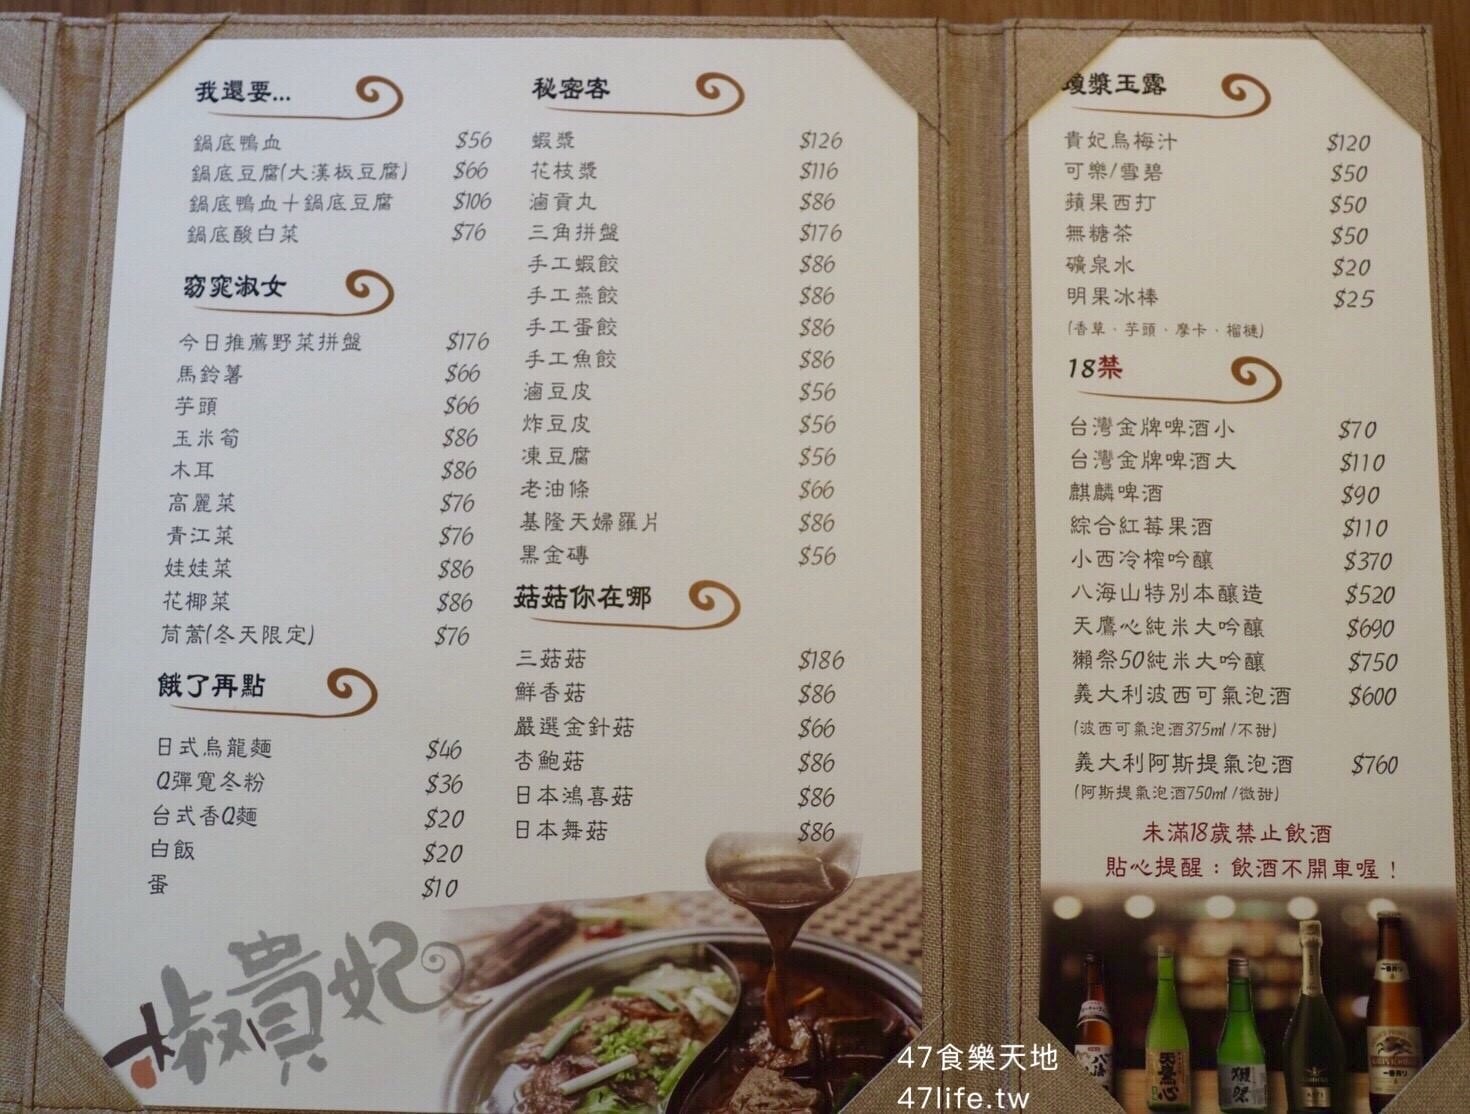 我還要...
鍋底鴨血 $56
鍋底豆腐(大漢板豆腐) $66
鍋底鴨血＋鍋底豆腐 $106
鍋底酸白菜 $76
窈窕淑女
今日推薦野菜拼盤 $176
馬鈴薯 $66
芋頭 $66
玉米筍 $86
木耳 $86
高麗菜 $76
青江菜 $76
娃娃菜 $86
花椰菜 $86
茼蒿(冬天限定) $76
餓了再點
日式烏龍麵 $46
Q彈寬冬粉 $36
台式香Q麵 $20
白飯 $20
蛋 $10
椒貴妃
秘密客
蝦漿 $126
花枝漿 $116
滷貢丸 $86
三角拼盤 $176
手工蝦餃 $86
手工燕餃 $86
手工蛋餃 $86
手工魚餃 $86
滷豆皮 $56
炸豆皮 $56
凍豆腐 $56
老油條 $66
基隆天婦羅片 $86
黑金磚 $56
菇菇你在哪
三菇菇 $186
鮮香菇 $86
嚴選金針菇 $66
杏鮑菇 $86
日本鴻喜菇 $86
日本舞菇 $86
瓊漿玉露
貴妃烏梅汁 $120
可樂/雪碧 $50
蘋果西打 $50
無糖茶 $50
礦泉水 $20
明果冰棒 $25
(香草、芋頭、摩卡、榴槤)
18禁
台灣金牌啤酒小 $70
台灣金牌啤酒大 $110
麒麟啤酒 $90
綜合紅莓果酒 $110
小西冷榨吟釀 $370
八海山特別本釀造 $520
天鷹心純米大吟釀 $690
獺祭50純米大吟釀 $750
義大利波西可氣泡酒 $600
(波西可氣泡酒375ml/不甜)
義大利阿斯提氣泡酒 $760
(阿斯提氣泡酒750ml/微甜)
未滿18歲禁止飲酒
貼心提醒：飲酒不開車喔！
八海
天鷹心
獺祭
一番搾り
47食樂天地
47life.tw